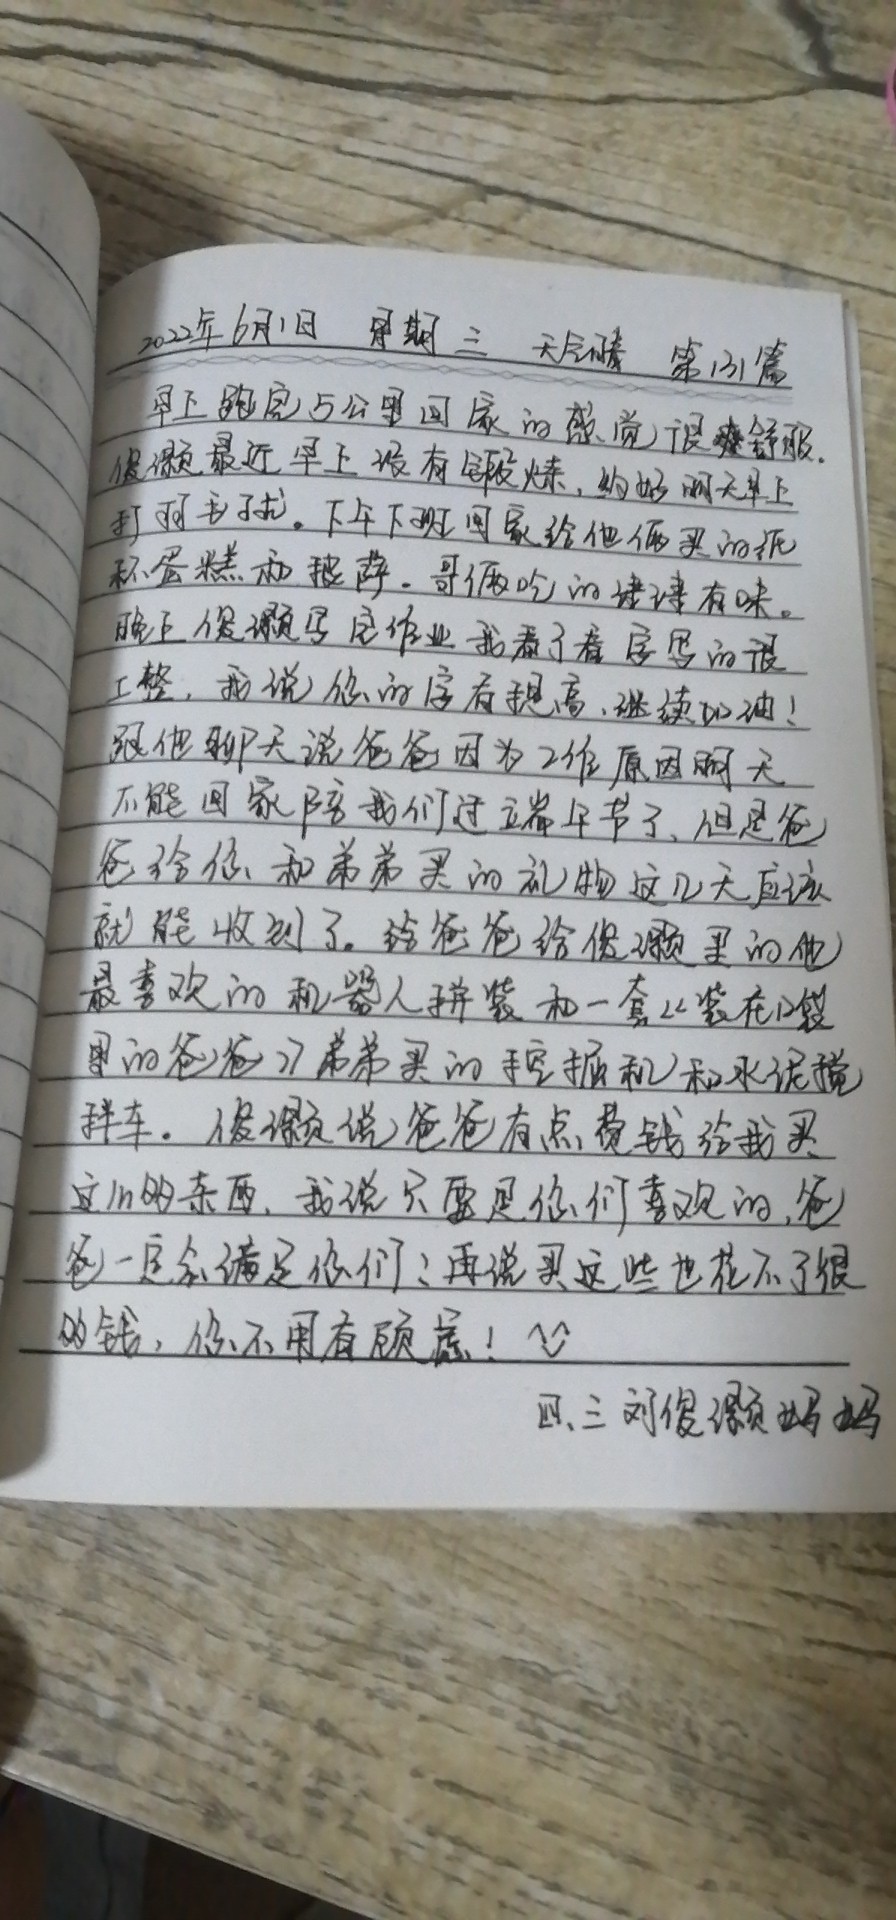 2022年6月1日 星期三 天气晴 第131篇
早上跑完5公里回家的感觉很舒服.
俊灏最近早上没有锻炼,约好明天早上
打羽毛球。下午下班回家给他俩买的纸
杯蛋糕和披萨。哥俩吃的津津有味。
晚上俊灏写完作业我看了看字写的很
工整,我说你的字有提高,继续加油!
跟他聊天说爸爸因为工作原因明天
不能回家陪我们过端午节了,但是爸
爸给你和弟弟买的礼物这几天应该
就能收到了。爸爸给俊灏买的他
最喜欢的机器人拼装和一套“装在口袋
里的爸爸 弟弟买的挖掘机和水泥搅
拌车。俊灏说爸爸有点费钱给我买
这么多的东西,我说只要是你们喜欢的,爸
爸一定会满足你们;再说买这些也花不了很
多钱,你不用有顾虑!
四、三 刘俊灏妈妈